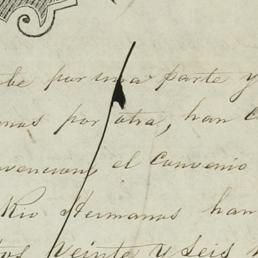 be por una parte y
por otra, han
el convenio
Rio Hermanos han
veinte y seis